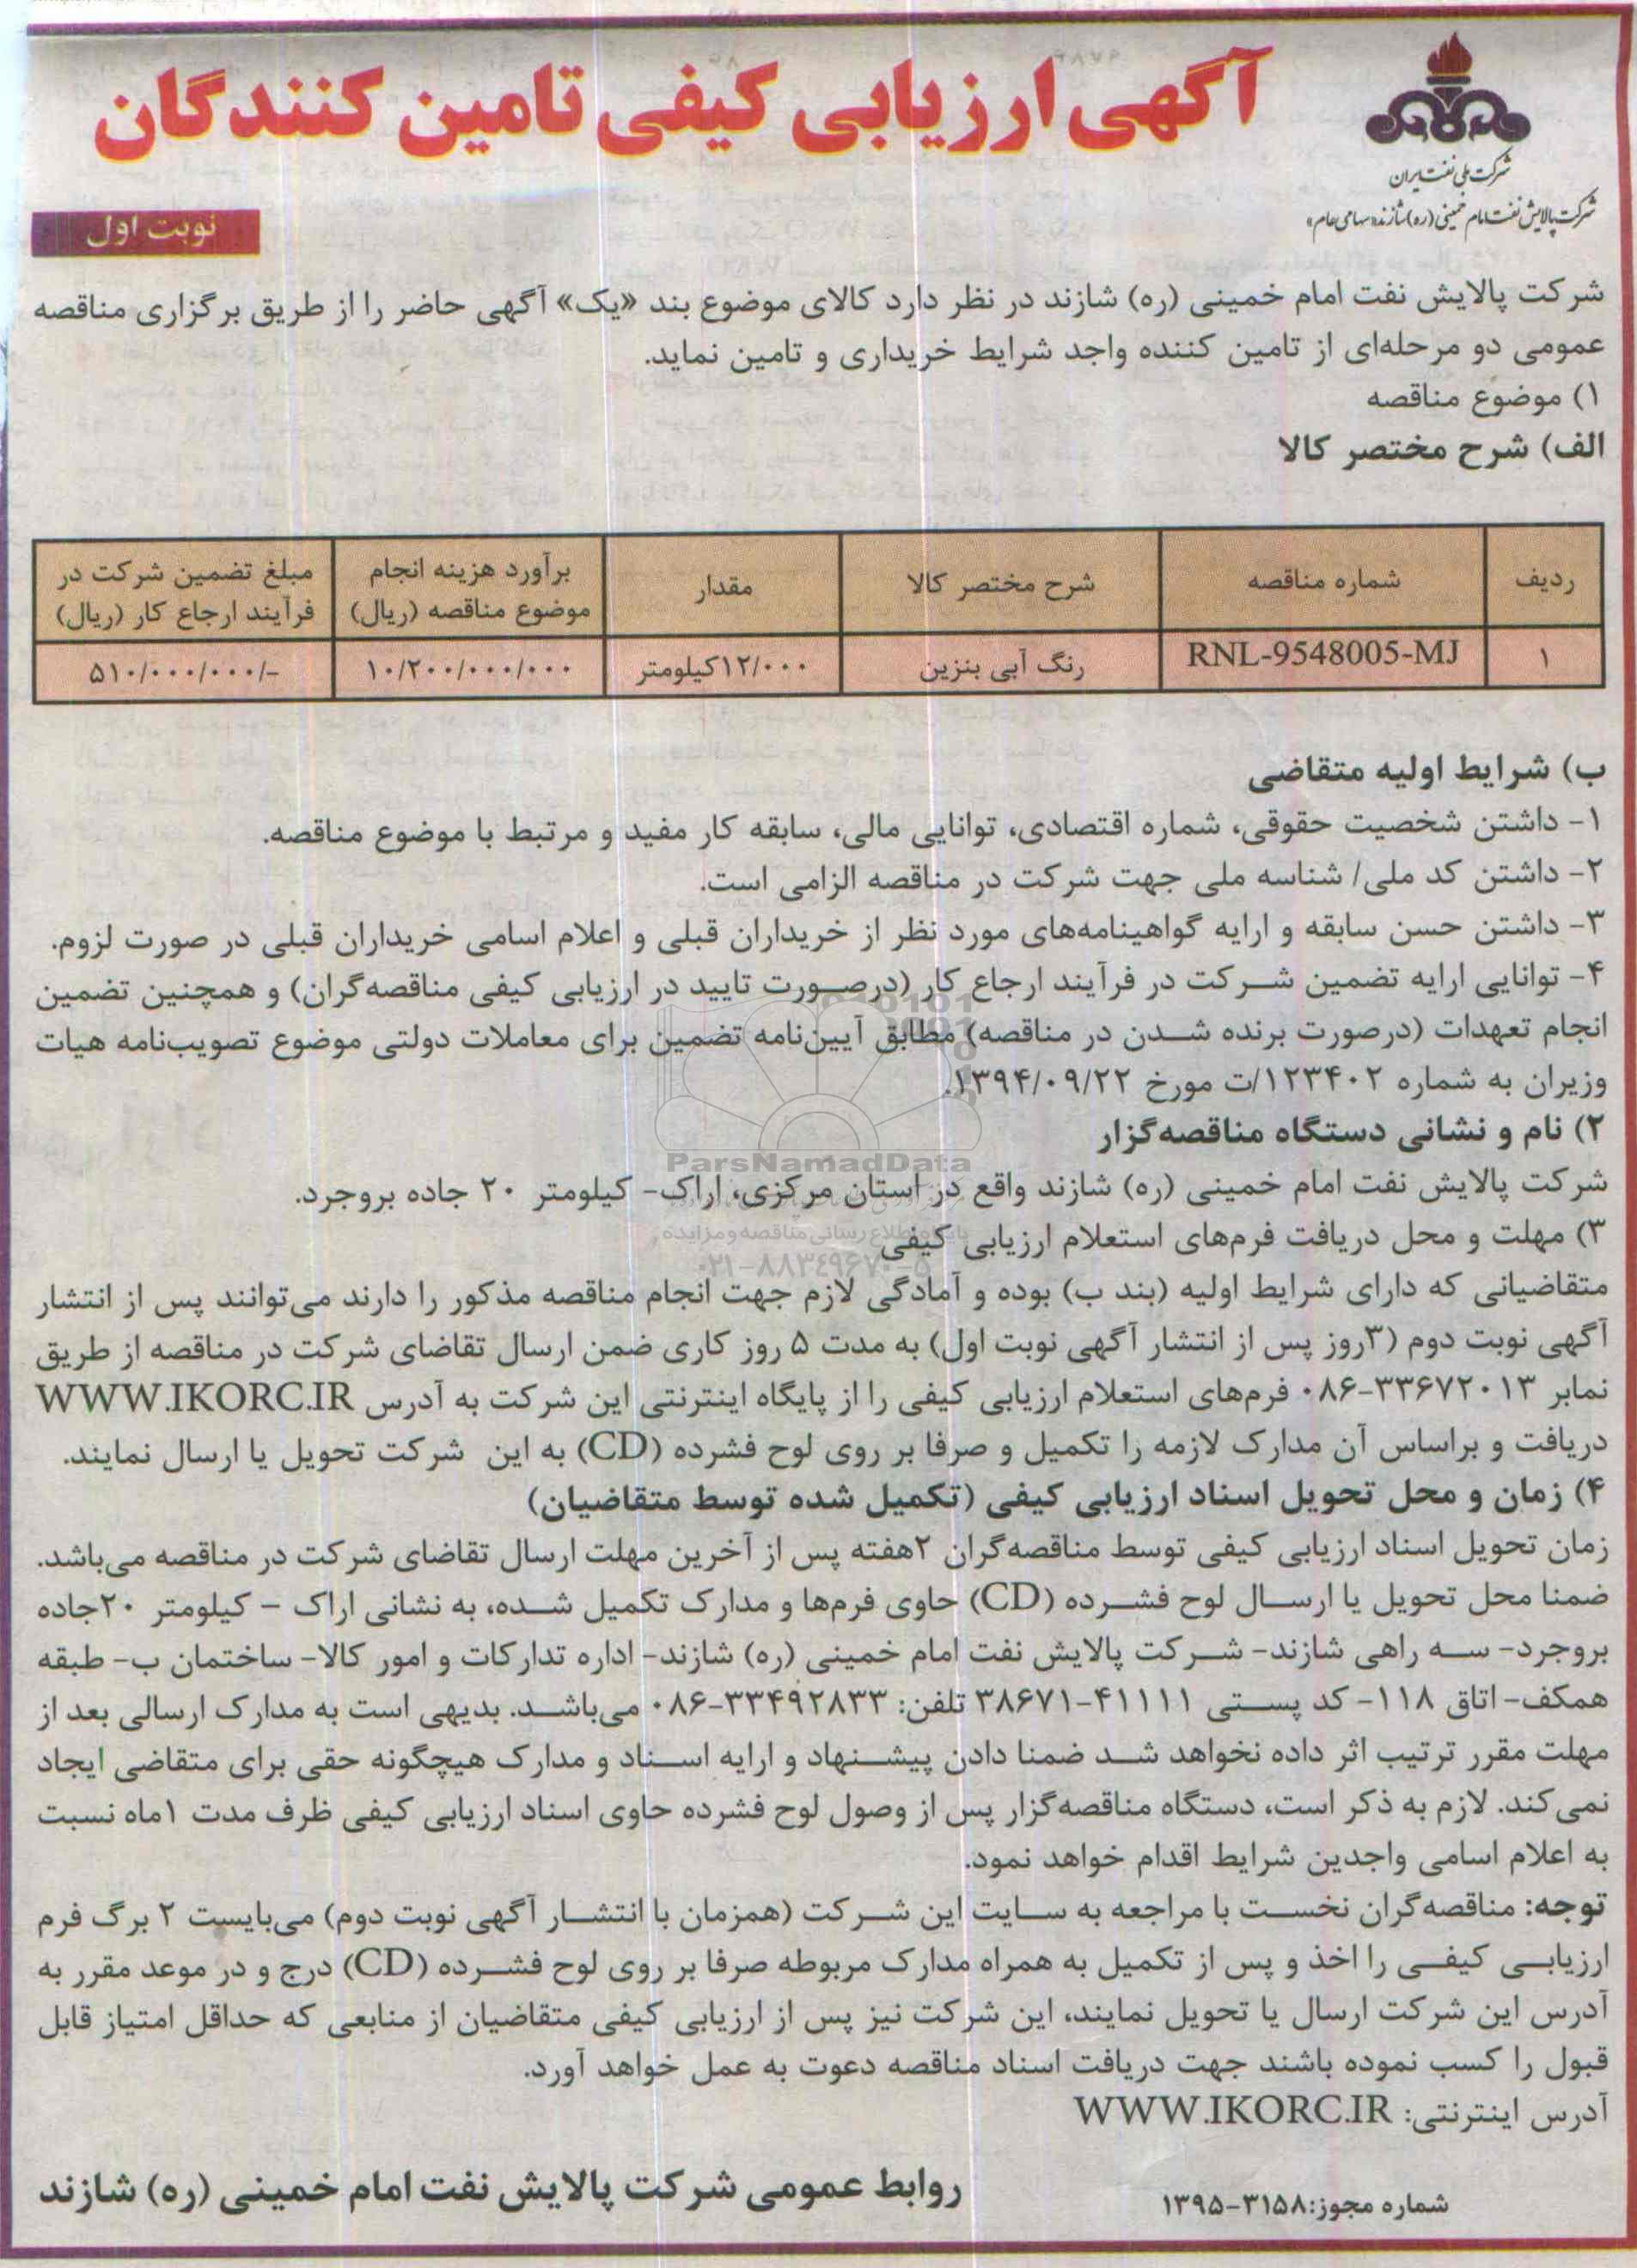 آگهی ارزیابی کیفی تامین کنندگان
شرکت ملی نفت ایران
شرکت پالایش نفت امام خمینی (ره) شازند «سهامی عام»
نوبت اول
شرکت پالایش نفت امام خمینی (ره) شازند در نظر دارد کالای موضوع بند «یک» آگهی حاضر را از طریق برگزاری مناقصه
عمومی دو مرحله‌ای از تامین کننده واجد شرایط خریداری و تامین نماید.
۱) موضوع مناقصه
الف) شرح مختصر کالا
ردیف شماره مناقصه شرح مختصر کالا مقدار برآورد هزینه انجام موضوع مناقصه (ریال) مبلغ تضمین شرکت در فرآیند ارجاع کار (ریال)
۱ RNL-9548005-MJ رنگ آبی بنزین ۱۲/۰۰۰کیلومتر ۱۰/۲۰۰/۰۰۰/۰۰۰ ۵۱۰/۰۰۰/۰۰۰/-
ب) شرایط اولیه متقاضی
۱- داشتن شخصیت حقوقی، شماره اقتصادی، توانایی مالی، سابقه کار مفید و مرتبط با موضوع مناقصه.
۲- داشتن کد ملی/ شناسه ملی جهت شرکت در مناقصه الزامی است.
۳- داشتن حسن سابقه و ارایه گواهینامه‌های مورد نظر از خریداران قبلی و اعلام اسامی خریداران قبلی در صورت لزوم.
۴- توانایی ارایه تضمین شرکت در فرآیند ارجاع کار (درصورت تایید در ارزیابی کیفی مناقصه‌گران) و همچنین تضمین
انجام تعهدات (درصورت برنده شدن در مناقصه) مطابق آیین‌نامه تضمین برای معاملات دولتی موضوع تصویب‌نامه هیات
وزیران به شماره ۱۲۳۴۰۲/ت مورخ ۱۳۹۴/۰۹/۲۲.
۲) نام و نشانی دستگاه مناقصه‌گزار
ParsNamadData
شرکت پالایش نفت امام خمینی (ره) شازند واقع در استان مرکزی، اراک- کیلومتر ۲۰ جاده بروجرد.
پایگاه اطلاع رسانی مناقصه و مزایده
۳) مهلت و محل دریافت فرم‌های استعلام ارزیابی کیفی
۰۲۱-۸۸۳۴۹۶۷۰-۵
متقاضیانی که دارای شرایط اولیه (بند ب) بوده و آمادگی لازم جهت انجام مناقصه مذکور را دارند می‌توانند پس از انتشار
آگهی نوبت دوم (۳روز پس از انتشار آگهی نوبت اول) به مدت ۵ روز کاری ضمن ارسال تقاضای شرکت در مناقصه از طریق
نمابر ۳۳۶۷۲۰۱۳-۰۸۶ فرم‌های استعلام ارزیابی کیفی را از پایگاه اینترنتی این شرکت به آدرس WWW.IKORC.IR
دریافت و براساس آن مدارک لازمه را تکمیل و صرفا بر روی لوح فشرده (CD) به این شرکت تحویل یا ارسال نمایند.
۴) زمان و محل تحویل اسناد ارزیابی کیفی (تکمیل شده توسط متقاضیان)
زمان تحویل اسناد ارزیابی کیفی توسط مناقصه‌گران ۲هفته پس از آخرین مهلت ارسال تقاضای شرکت در مناقصه می‌باشد.
ضمنا محل تحویل یا ارسال لوح فشرده (CD) حاوی فرم‌ها و مدارک تکمیل شده، به نشانی اراک – کیلومتر ۲۰جاده
بروجرد- سه راهی شازند- شرکت پالایش نفت امام خمینی (ره) شازند- اداره تدارکات و امور کالا- ساختمان ب- طبقه
همکف- اتاق ۱۱۸- کد پستی ۴۱۱۱۱-۳۸۶۷۱ تلفن: ۳۳۴۹۲۸۳۳-۰۸۶ می‌باشد. بدیهی است به مدارک ارسالی بعد از
مهلت مقرر ترتیب اثر داده نخواهد شد ضمنا دادن پیشنهاد و ارایه اسناد و مدارک هیچگونه حقی برای متقاضی ایجاد
نمی‌کند. لازم به ذکر است، دستگاه مناقصه‌گزار پس از وصول لوح فشرده حاوی اسناد ارزیابی کیفی ظرف مدت ۱ماه نسبت
به اعلام اسامی واجدین شرایط اقدام خواهد نمود.
توجه: مناقصه‌گران نخست با مراجعه به سایت این شرکت (همزمان با انتشار آگهی نوبت دوم) می‌بایست ۲ برگ فرم
ارزیابی کیفی را اخذ و پس از تکمیل به همراه مدارک مربوطه صرفا بر روی لوح فشرده (CD) درج و در موعد مقرر به
آدرس این شرکت ارسال یا تحویل نمایند، این شرکت نیز پس از ارزیابی کیفی متقاضیان از منابعی که حداقل امتیاز قابل
قبول را کسب نموده باشند جهت دریافت اسناد مناقصه دعوت به عمل خواهد آورد.
آدرس اینترنتی: WWW.IKORC.IR
روابط عمومی شرکت پالایش نفت امام خمینی (ره) شازند
شماره مجوز:۳۱۵۸-۱۳۹۵